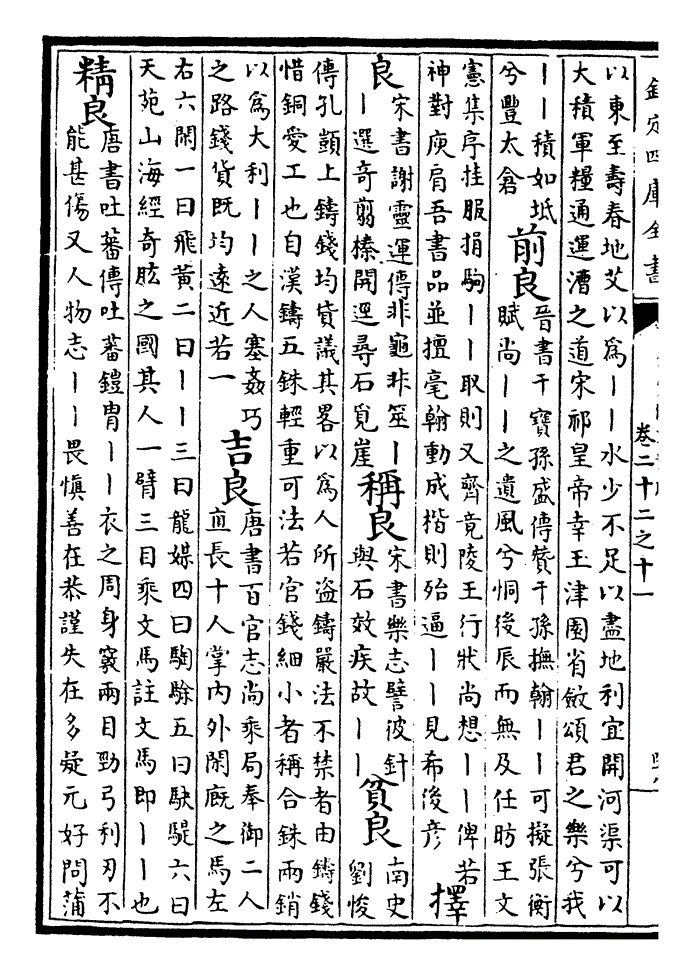 欽定四庫全書
卷二十二之十一
以東至壽春地艾以為丨丨水少不足以盡地利宜開河渠可以
大積軍糧通運漕之道宋祁皇帝幸玉津園省斂頌君之樂兮我
丨丨積如坻
兮豐太倉
前良
晉書干寶孫盛傳贊干孫撫翰丨丨可擬張衡
賦尚丨丨之遺風兮恫後辰而無及任昉王文
憲集序挂服捐駒丨丨取則又齊竟陵王行狀尚想丨丨俾若
神對庾肩吾書品並擅毫翰動成楷則殆逼丨丨見希後彥
擇
良
宋書謝靈運傳非龜非筮丨
丨選奇翦榛開逕尋石覓崖
稱良
宋書樂志譬彼針
與石效疾故丨丨
貧良
南史
劉悛
傳孔顗上鑄錢均貨議其畧以為人所盜鑄嚴法不禁者由鑄錢
惜銅愛工也自漢鑄五銖輕重可法若官錢細小者稱合銖兩銷
以為大利丨丨之人塞姦巧
之路錢貨既均遠近若一
吉良
唐書百官志尚乘局奉御二人
直長十人掌內外閑廐之馬左
右六閑一曰飛黃二曰丨丨三曰龍媒四曰騊駼五曰駃騠六曰
天苑山海經奇肱之國其人一臂三目乘文馬註文馬即丨丨也
精良
唐書吐蕃傳吐蕃鎧胄丨丨衣之周身竅兩目勁弓利刃不
能甚傷又人物志丨丨畏慎善在恭謹失在多疑元好問蒲